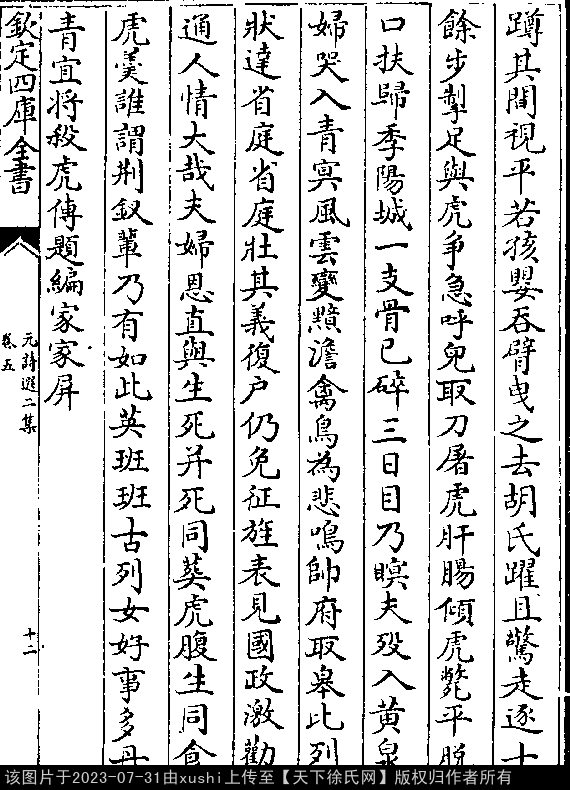 蹲其間視平若孩嬰吞臂曳之去胡氏躍且驚走逐十
餘步掣足與虎爭急呼兒取刀屠虎肝腸傾虎斃平脫
口扶歸季陽城一支骨已碎三日目乃瞑夫殁入黄泉
婦哭入青冥風雲變黯澹禽鳥為悲鳴帥府取皋比列
狀達省庭省庭壯其義復户仍免征旌表見國政激勸
通人情大哉夫婦恩直與生死并死同葬虎腹生同食
虎羹誰謂荆釵輩乃有如此英班班古列女好事多丹
青宜将殺虎傳題編家家屏
欽定四庫全書
元詩選二集
卷五
十二
该图片于2023-07-31由xushi上传至【天下徐氏网】版权归作者所有